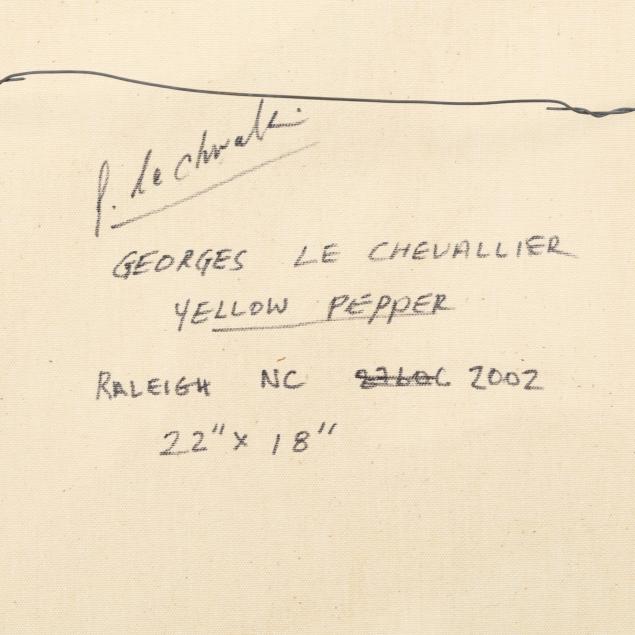 GEORGES LE CHEVALLIER
YELLOW PEPPER
RALEIGH NC 2002
22" x 18"